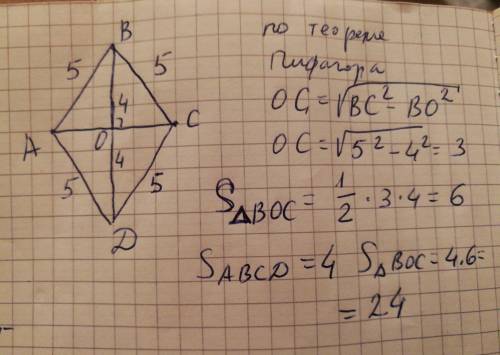 B
5
5
4
A
O
C
4
5
5
D
по теореме
Пифагора
OC = √BC² - BO²
OC = √5² - 4² = 3
S△BOC = 1/2 · 3 · 4 = 6
SABCD = 4 S△BOC = 4.6 =
= 24